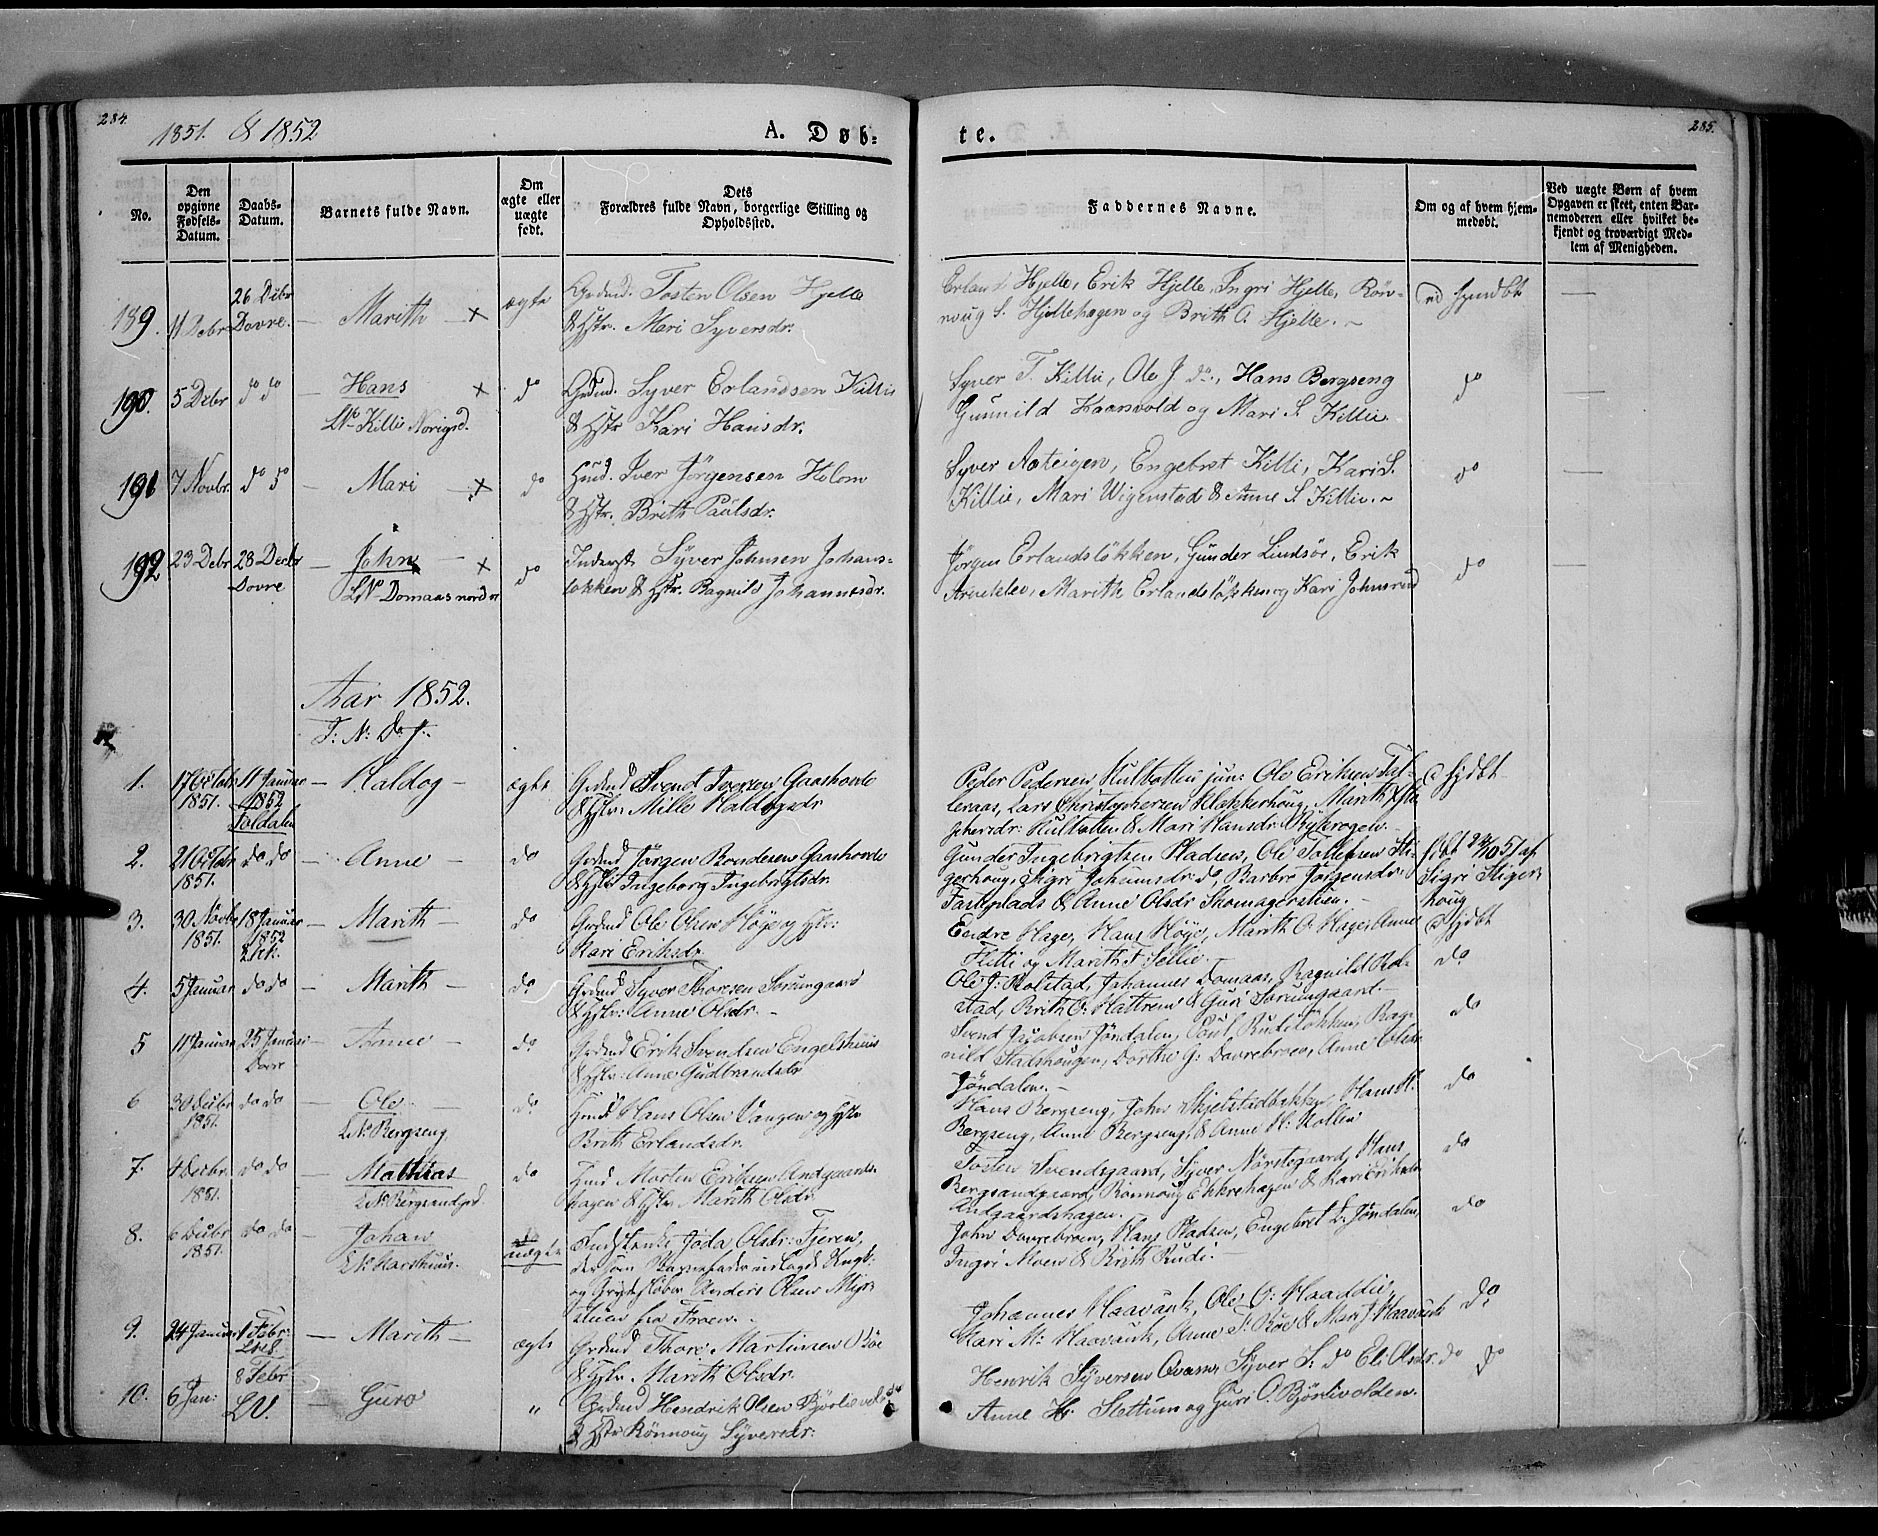 284.
1851. & 1852
A. Døb-
te.
285.
No.
Den opgivne Fødsels-Datum.
Daabs-Datum.
Barnets fulde Navn.
Om ægte eller uægte født.
Dets Forældres fulde Navn, borgerlige Stilling og Opholdssted.
Faddernes Navne.
Om og af hvem hjem-medøbt.
Ved uægte Børn af hvem Opgaven er skeet, enten Bar-nemoderen eller hvilket be-kjendt og troværdigt Med-lem af Menigheden.
189. 11 Debr 26 Debr Dovre. — Marith — x ægte
Grdmd. Tosten Olsen Hjelle
& Hstr. Mari Syversdr.
Erland Hjelle, Erik Hjelle, Ingri Hjelle, Rön-
noug S. Hjellehagen og Brith O. Hjelle. ~
190. 5 Debr do do — Hans x do
LN Killie Norigrd.
Grdmd. Syver Erlandsen Killie
& Hstr Kari Hansdr.
Syver T. Killie, Ole J. do., Hans Bergseng
Gunnild Kaarsvold og Mari S. Killie
do
191 7 Novbr. do do — Mari — x do
Husmd. Iver Jörgensen Holom
& Hstr. Brith Paulsdr.
Syver Aateigen, Engebret Killi, Kari S.
Killie, Mari Wigenstad & Anne S. Killie. ~
do
192 23 Debr 28 Decbr Dovre — John — x do
LN Domaas nordre
Inderst Syver Johnsen Johans-
løkken & Hstr. Ragnild Johannesdr.
Jörgen Erlandsløkken, Gunder Lindsöe, Erik
Arneklev, Marith Erlandsløkken og Kari Johnsrud
do
Aar 1852.
I: N: D: J:
1. 17 Octobr 1851. 11 Januar 1852 Foldalen — Haldog — ægte
Grdmd Svend Iversen Gaashovde
& Hstr: Mille Haldogsdr
Peder Pedersen Hulbotten jun: Ole Eriksen Fal-
leraas, Lars Christophersen Klokkerhoug, Marith
Hulbotten & Mari Hansdr Rykrogen.
2. 21 Octobr 1851. do do — Anne — do
Grdmd Jörgen Bendesen Gaashovde
& Hstr Ingeborg Ingebrigtsdr.
Gunder Ingebrigtsen Pladsen, Ole Tollefsen Sti-
gerhoug, Sigri Johansdr do, Barbro Jörgensdr
& Anne Olsdr
af
Sigri Stiger-
houg
3. 30. Novbr 1851. 18 Januar 1852 — Marith — do
Grdmd Ole Olsen Höye og Hstr:
Kari Eriksdr.
Endre Hage, Hans Höye, Marith O. Hage, Anne
Flitti og Marith T. Sellie.
4. 5 Januar do do — Marith — do
Grdmd Syver Thoresen Sörumgaard
& Hstr: Anne Olsdr. —
Ole J: Rolstad, Johannes Domaas, Ragnild Rol-
stad, Brith O: Hattrem & Guri Sörumgaard. —
do
5 11 Januar 25 Januar Dovre — Anne — do
Grdmd Erik Svendsen Engelshuus
& Hstr: Anne Gudbrandsdr
Svend Jacobsen Jöndalen, Poul Rudiløkken, Rag-
nild Stadshougen, Dorthe G: Dovrebroen, Anne Olsdr
Jöndalen. —
do
6 30 Debr 1851. do do — Ole — do
LN Bergseng
Husmd Hans Olsen Vangen og Hstr
Brith Erlandsdr.
Hans Bergseng, John Skjelstadbakken, Hans H.
Bergseng, Anne Bergseng, & Anne H: Kollen
do
7. 4 Decbr. 1851. do do — Mathias do
LN Bergsandgrd.
Husmd Morten Eriksen Andgaards-
hagen & Hstr Marith Olsdr
Tosten Svendsgaard, Syver Nörstegaard, Hans
Bergsandgaard, Rönnoug Ekkrehagen & Kari Eriksdr
Andgaardshagen.
do
8. 6 Debr 1851. do do — Johan uægte
LN Harshuus.
Joda Olsdr: Tjeren,
der som Barnefader udlagde Ungk:
og Anders Olsen
fra Froen.
John Dovrebroen, Hans Pladsen, Engebret D: Jöndalen,
Ingri Moen & Brith Rudi. —
do
9. 24 Januar 1 Febr: — Marith — ægte
Grdmd Thore Martinsen Böe
& Hstr. Marith Olsdr.
Johannes Haavank, Ole O: Haaddie,
Kari M: Haavank, Anne T. Böe & Mari J. Haavank
do
10. 6 Jan: 8 Febr LV. — Guro „
Grdmd Hendrik Olsen Björlievold
& Hstr Rönnoug Syversdr:
Henrik Syversen Syver S: do Eli Olsdr: do
Anne H: Slettum og Guri O. Björlivolden.
do